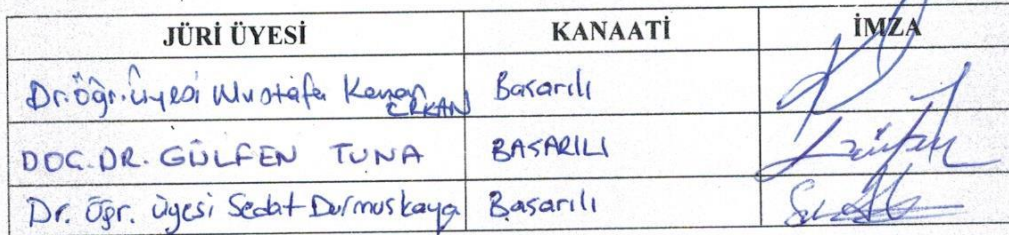 JÜRİ ÜYESİ KANAATİ İMZA
Dr. Öğr. Üyesi Mustafa Kenan ERKAN Başarılı
DOÇ. DR. GÜLFEN TUNA BAŞARILI
Dr. Öğr. Üyesi Sedat Durmuşkaya Başarılı